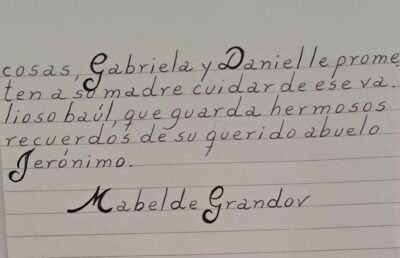 cosas, Gabriela y Danielle prome
ten a su madre cuidar de ese va.
lioso baúl, que guarda hermosos
recuerdos de su querido abuelo
Jerónimo.
Mabel de Grandov